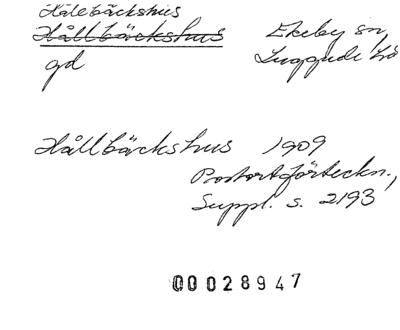 Hällebäckshus
Hållbäckshus Ekeby sn,
gd Luggude hd
Hållbäckshus 1909
Postortförteckn.,
Suppl. s. 2193
00028947